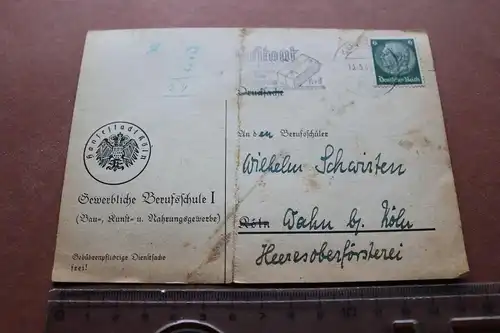 Klopf
Drucksache
6
Deutsches Reich
Hansestadt Köln
Gewerbliche Berufsschule I
(Bau-, Kunst- u. Nahrungsgewerbe)
Gebührenpflichtige Dienstsache
frei!
An den Berufsschüler
Wilhelm Schwisten
Köln Wahn b/ Köln
Heeresoberförsterei